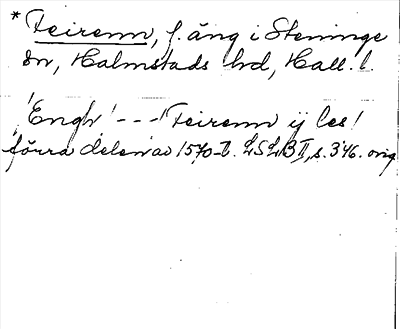 * Feirenn, f. äng i Steninge
sn, Halmstads hd, Hall. l.
'Engh' --- 'Feirenn ij les'
förra delen av 1570-t. LSLB II, s. 346. orig